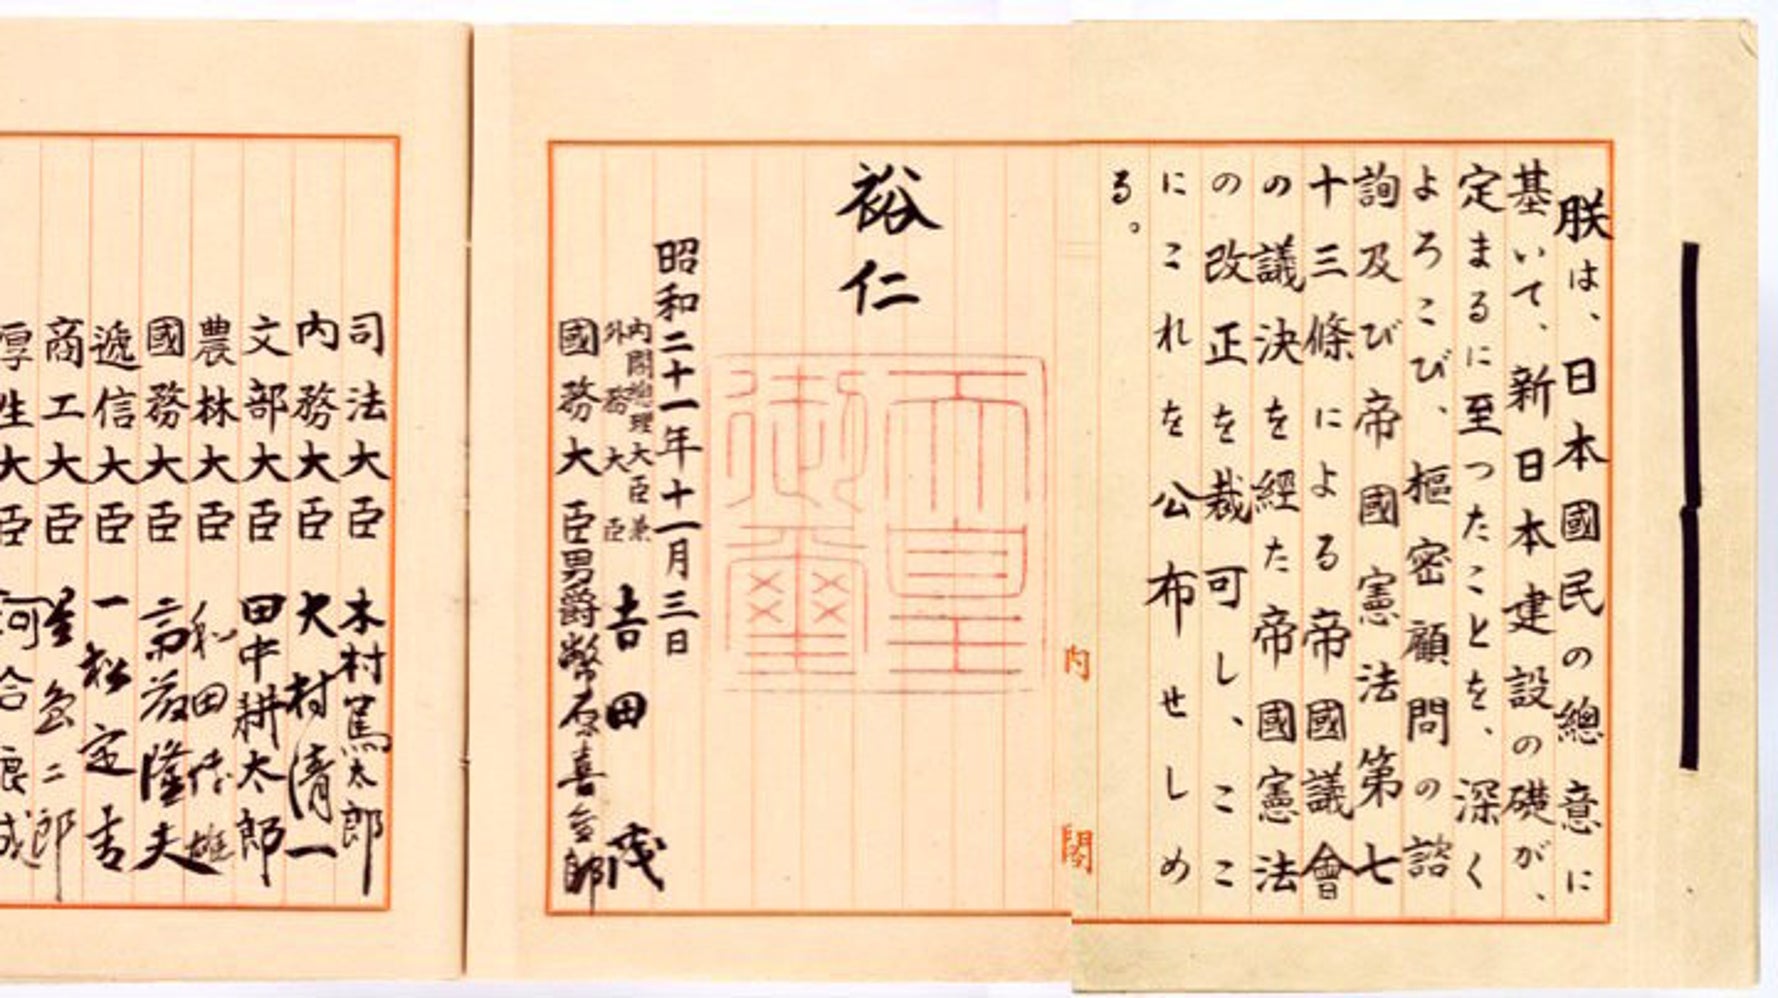 朕は、日本國民の總意に
基いて、新日本建設の礎が、
定まるに至つたことを、深く
よろこび、樞密顧問の諮
詢及び帝國憲法第七
十三條による帝國議會
の議決を經た帝國憲法
の改正を裁可し、ここ
にこれを公布せしめ
る。
裕仁
天皇
御璽
内閣
昭和二十一年十一月三日
内閣總理大臣兼
外務大臣 吉田茂
國務大臣男爵幣原喜重郎
司法大臣 木村篤太郎
内務大臣 大村清一
文部大臣 田中耕太郎
農林大臣 和田博雄
國務大臣 斎藤隆夫
遞信大臣 一松定吉
商工大臣 星島二郎
厚生大臣 河合良成